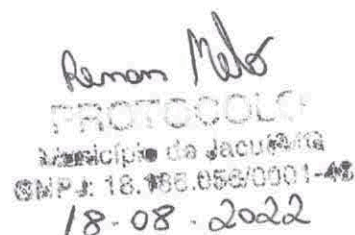 Renan Melo
PROTOCOLO
Município de Jacutinga
CNPJ: 18.186.056/0001-48
18-08-2022